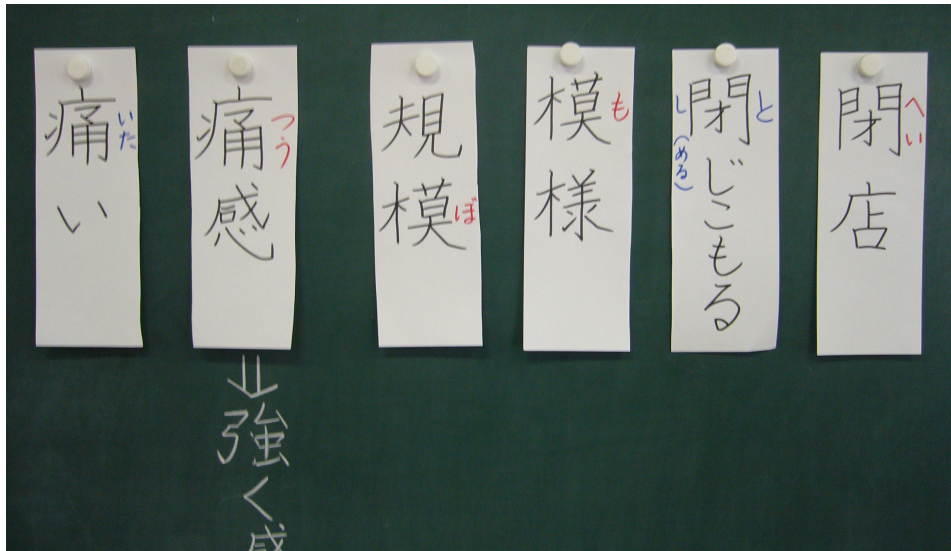 閉店
へい
閉じこもる
と
し(める)
模様
も
規模
ぼ
痛感
つう
⇓
強く感
痛い
いた